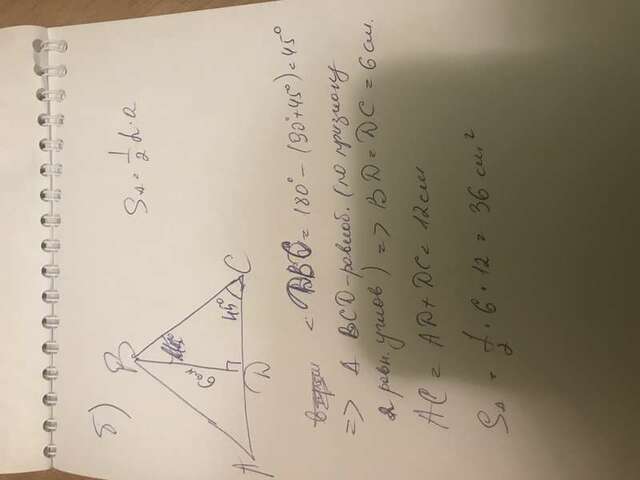 б)
S△ = 1/2 h·a
B
6 см
45°
A
D
C
< DBC = 180° - (90°+45°) = 45°
=> △ BCD - равноб. (по признаку
2 равн. углов) => BD = DC = 6 см.
AC = AD + DC = 12 см
S△ = 1/2 · 6 · 12 = 36 см²